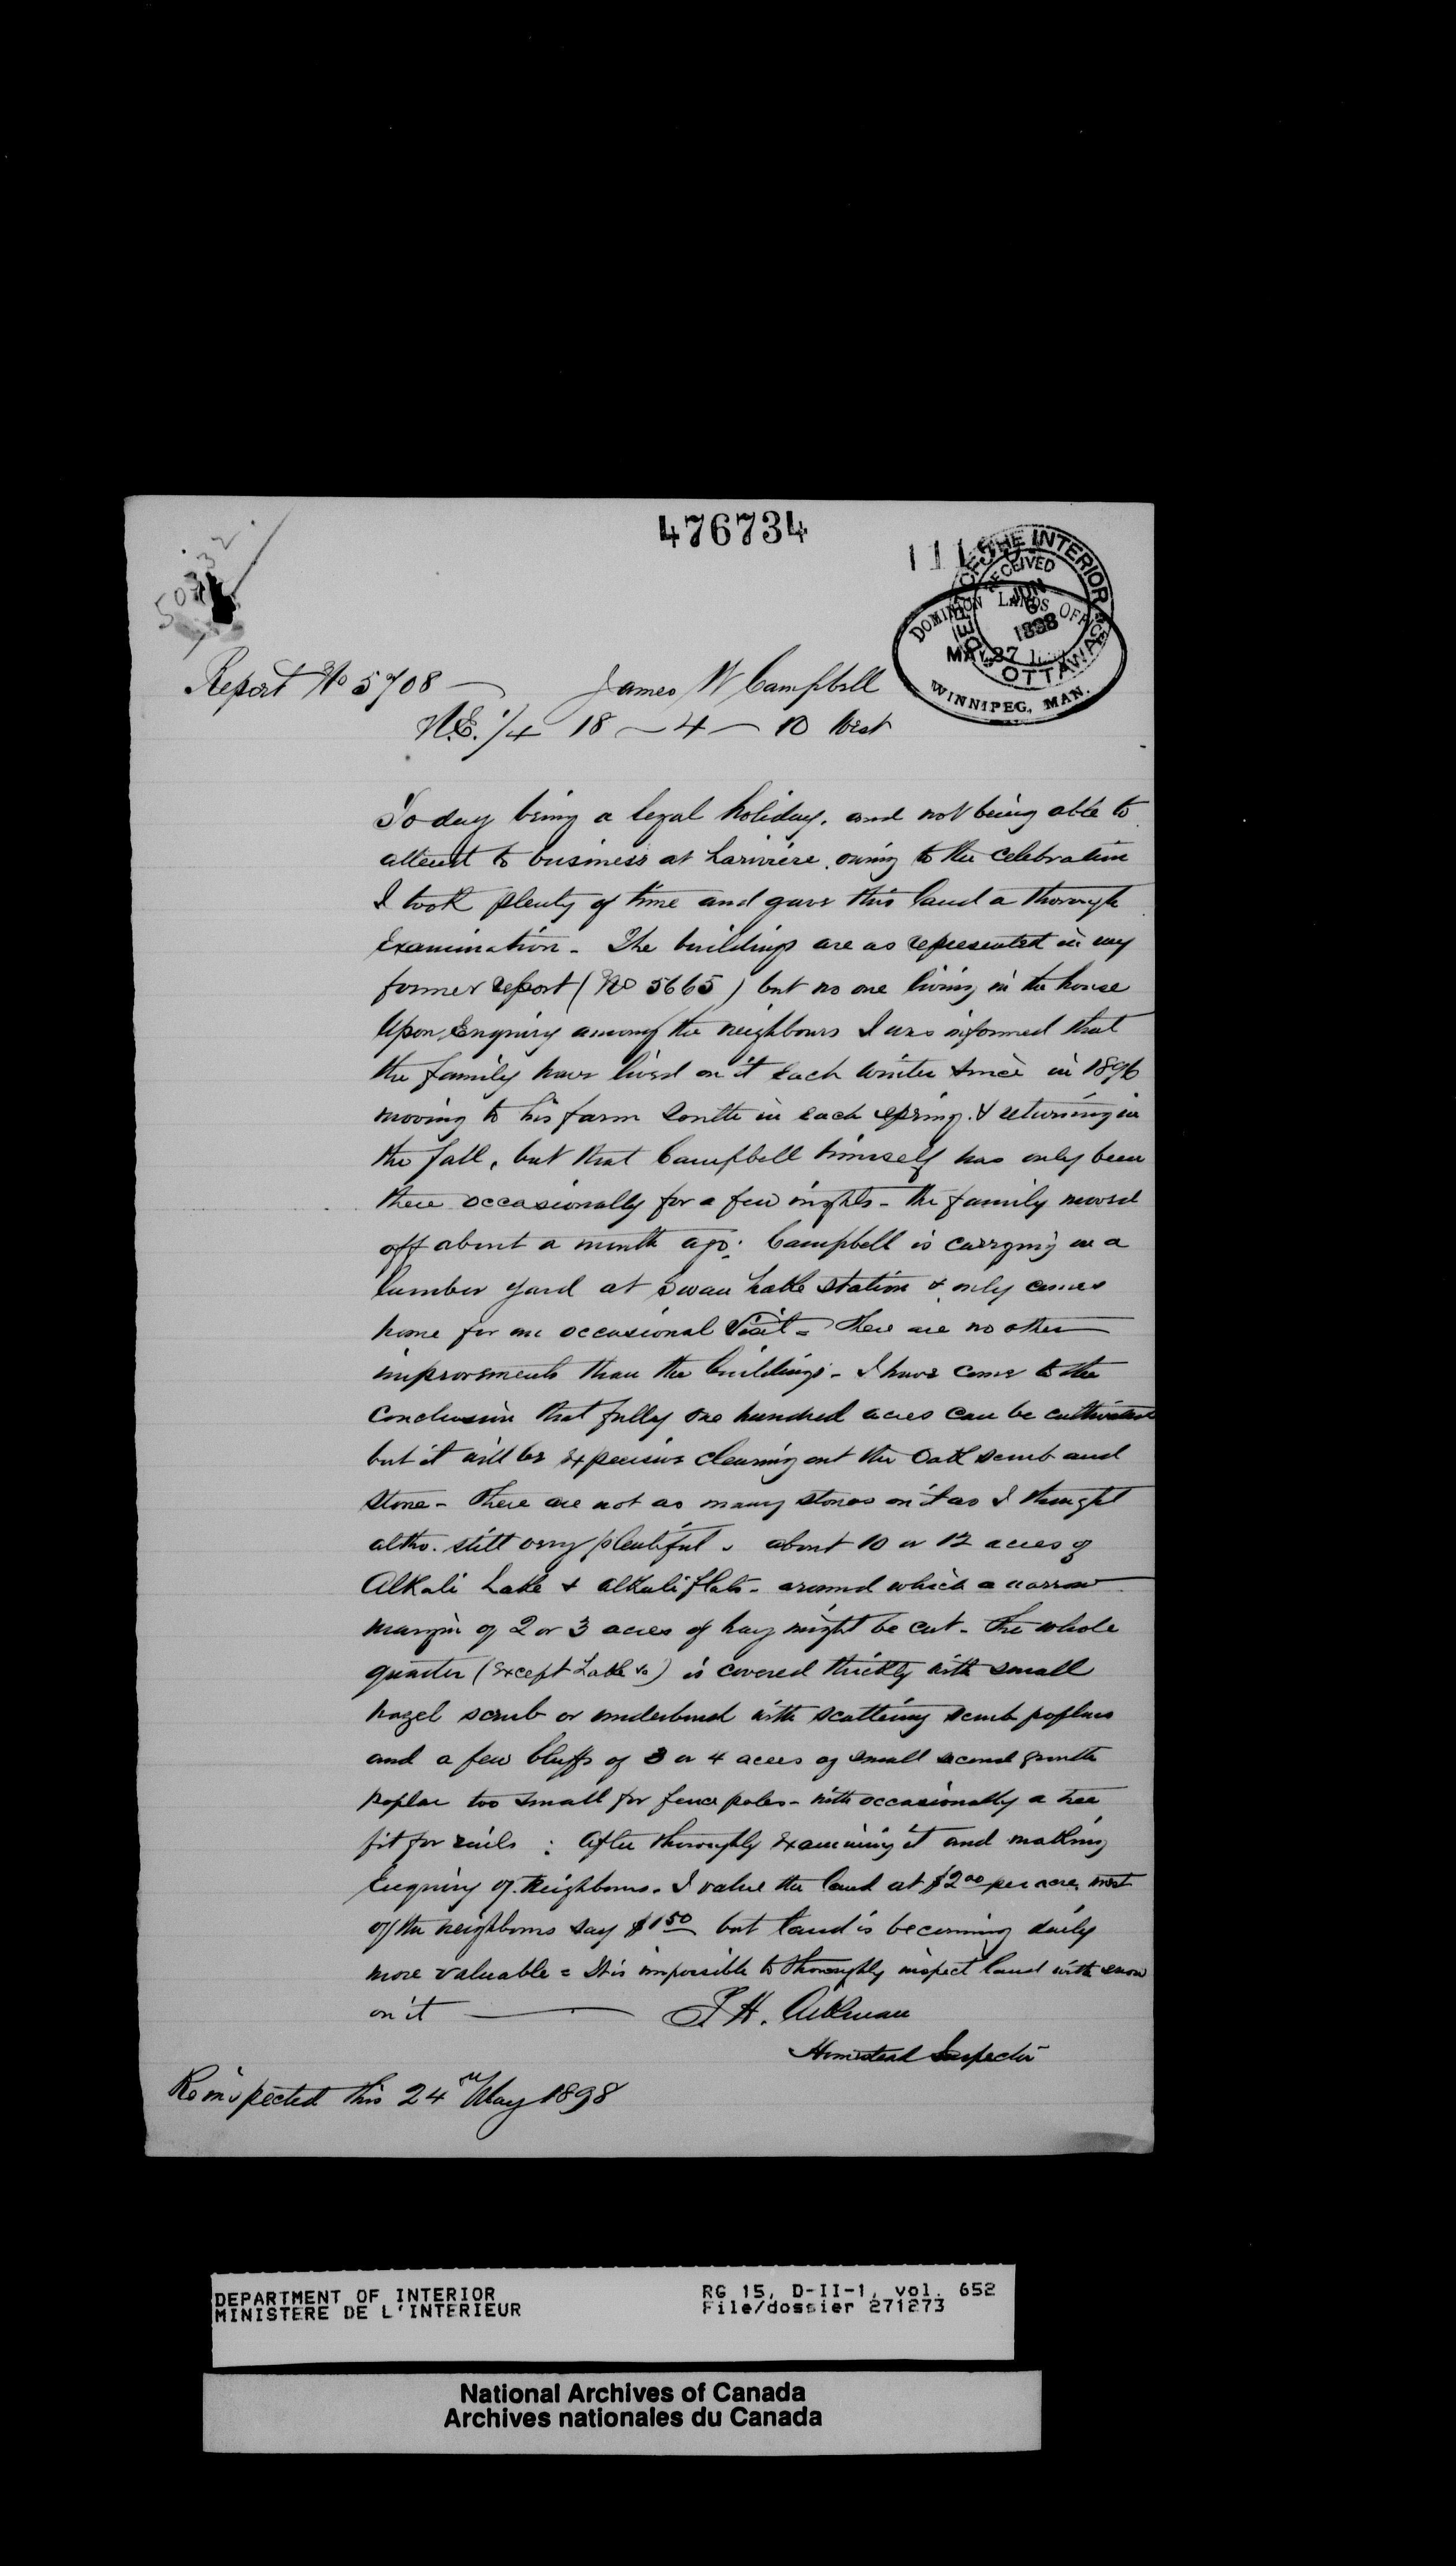 476734
DEPT. OF THE INTERIOR
RECEIVED
JUN
6
1898
OTTAWA
DOMINION LANDS OFFICE
MAY 27
WINNIPEG, MAN.
Report No 5708 — James W Campbell
N.E. 1/4 18 — 4 — 10 West
To day being a legal holiday. and not being able to
attend to business at Lariviere. owing to the celebration
I took plenty of time and gave this land a thorough
Examination - The buildings are as represented in my
former report (No 5665) but no one living in the house
Upon Enquiry among the neighbours I was informed that
the family have lived on it each winter since in 1896
moving to his farm South in each spring. & returning in
the fall, but that Campbell himself has only been
there occasionally for a few nights - the family moved
off about a month ago. Campbell is carrying on a
lumber yard at Swan Lake station & only comes
home for an occasional Visit = There are no other
improvements than the buildings - I have come to the
Conclusion that fully one hundred acres can be cultivated
but it will be expensive cleaning out the Oak scrub and
Stone - There are not as many stones on it as I thought
altho. still very plentiful. about 10 or 12 acres of
Alkali Lake & alkali flats - around which a narrow
margin of 2 or 3 acres of hay might be cut - The whole
quarter (Except Lake &c) is covered thickly with small
hazel scrub or underbrush with scattering scrub poplars
and a few bluffs of 3 or 4 acres of small second growth
Poplar too small for fence poles - with occasionally a tree
fit for rails : After thoroughly Examining it and making
Enquiry of Neighbours. I value the land at $2.00 per acre, most
of the neighbours say $1.50 but land is becoming daily
more valuable = It is impossible to thoroughly inspect land with snow
on it — H. Aikman
Homestead Inspector
Reinspected this 24th May 1898
DEPARTMENT OF INTERIOR RG 15, D-II-1, vol. 652
MINISTERE DE L'INTERIEUR File/dossier 271273
National Archives of Canada
Archives nationales du Canada